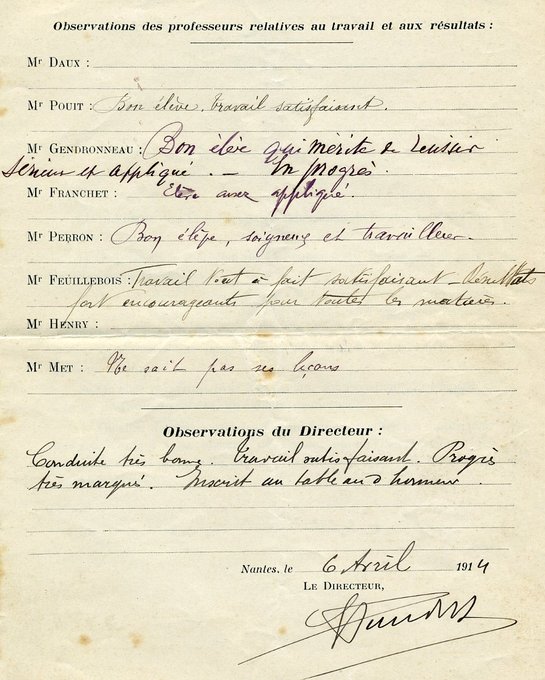 Observations des professeurs relatives au travail et aux résultats :
Mr DAUX :
Mr POUIT : Bon élève. travail satisfaisant.
Mr GENDRONNEAU : Bon élève qui mérite de réussir
Sérieux et appliqué. — En progrès.
Mr FRANCHET : Elève assez appliqué.
Mr PERRON : Bon élève, soigneux et travailleur.
Mr FEUILLEBOIS : Travail tout à fait satisfaisant - Résultats
fort encourageants pour toutes les matières.
Mr HENRY :
Mr MET : Ne sait pas ses leçons
Observations du Directeur :
Conduite très bonne. Travail satisfaisant. Progrès
très marqué. Inscrit au tableau d'honneur.
Nantes, le 6 Avril 1914
LE DIRECTEUR,